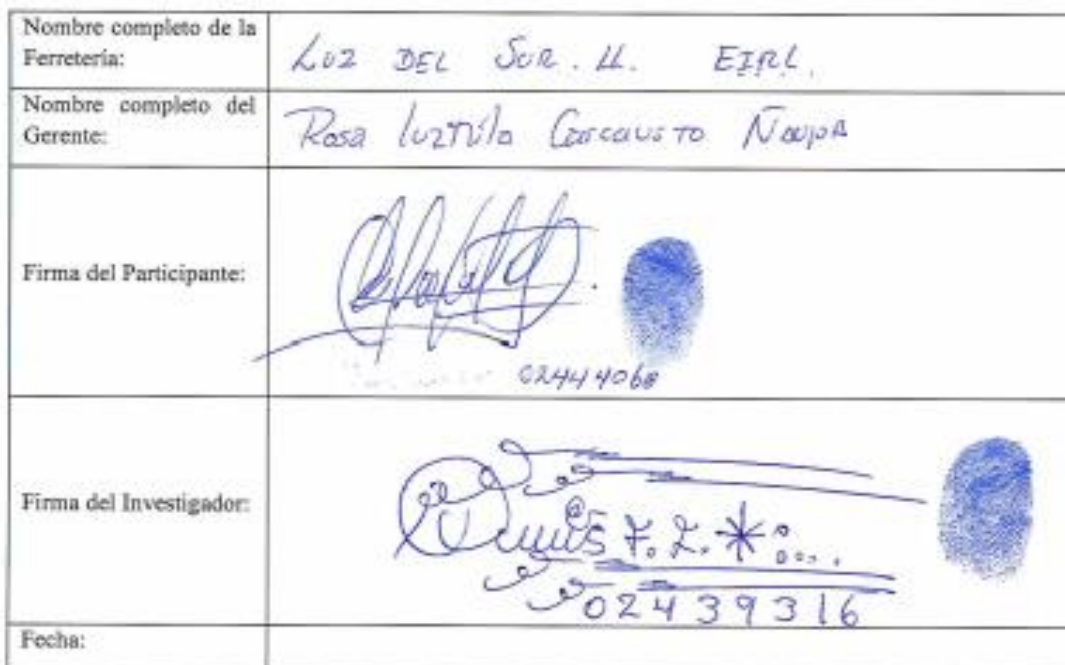 Nombre completo de la
Ferretería:
LUZ DEL SUR. LL. EIRL.
Nombre completo del
Gerente:
Rosa luztila Ñaupa
Firma del Participante:
02444068
Firma del Investigador:
F. Z.
02439316
Fecha: